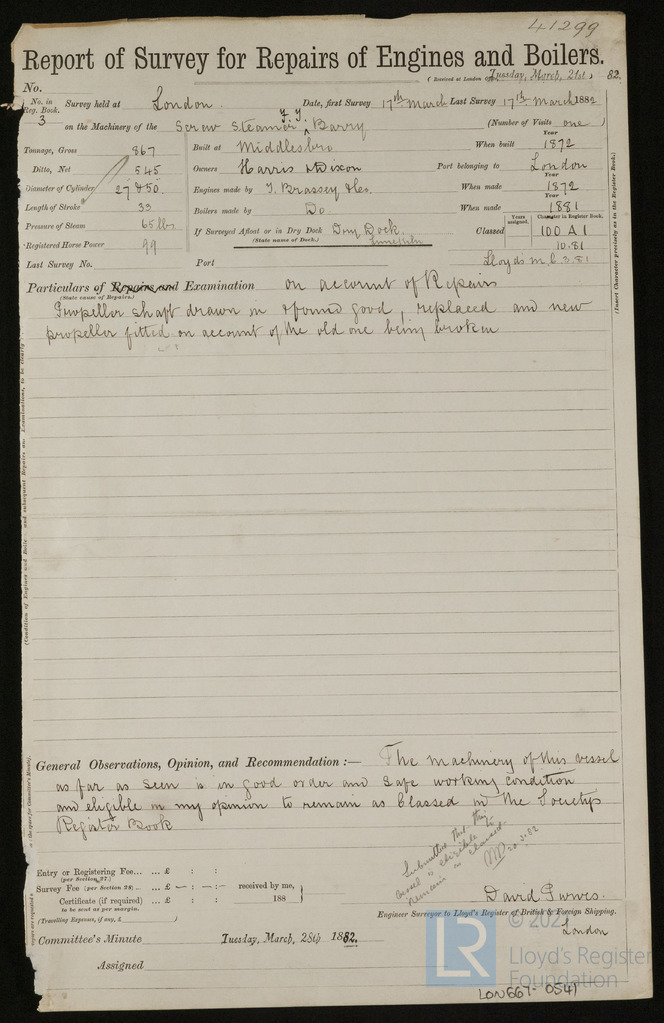 41299
Report of Survey for Repairs of Engines and Boilers.
(Received at London Office, Tuesday, March, 21st, 82.
No.
No. in Reg. Book. Survey held at London. Date, first Survey 17th March Last Survey 17th March 1882
3 on the Machinery of the Screw Steamer T. T. Barry (Number of Visits one)
Tonnage, Gross 867 Built at Middlesbro When built Year 1872
Ditto, Net 545 Owners Harris & Dixon Port belonging to London
Diameter of Cylinder 27 & 50. Engines made by T. Brassey & Co. When made Year 1872
Length of Stroke 33 Boilers made by Do When made Year 1881
Pressure of Steam 65 lbs. If Surveyed Afloat or in Dry Dock Dry Dock. Classed Years assigned. Character in Register Book. 100 A 1
(State name of Dock.) Limekiln
Registered Horse Power 99 10.81
Last Survey No. Port Lloyds M.C. 3.81
(Insert Character precisely as in the Register Book.)
Particulars of Repairs and Examination on account of Repairs
(State cause of Repairs.)
Propeller shaft drawn in & found good, replaced and new
propeller fitted on account of the old one being broken
General Observations, Opinion, and Recommendation :— The machinery of this vessel
as far as seen is in good order and safe working condition
and eligible in my opinion to remain as Classed in the Society's
Register Book
Submitted that this
vessel is eligible to
remain as classed.
20.3.82
Entry or Registering Fee... ... £ : :
(per Section 27.)
Survey Fee (per Section 28) .. ... £ — : — : — received by me,
Certificate (if required) ... £ : : 188
to be sent as per margin.
(Travelling Expenses, if any, £ )
David Purves.
Engineer Surveyor to Lloyd's Register of British & Foreign Shipping.
London
Committee's Minute Tuesday, March, 28th 1882.
Assigned
LR
Lloyd's Register
Foundation
LON667-0541